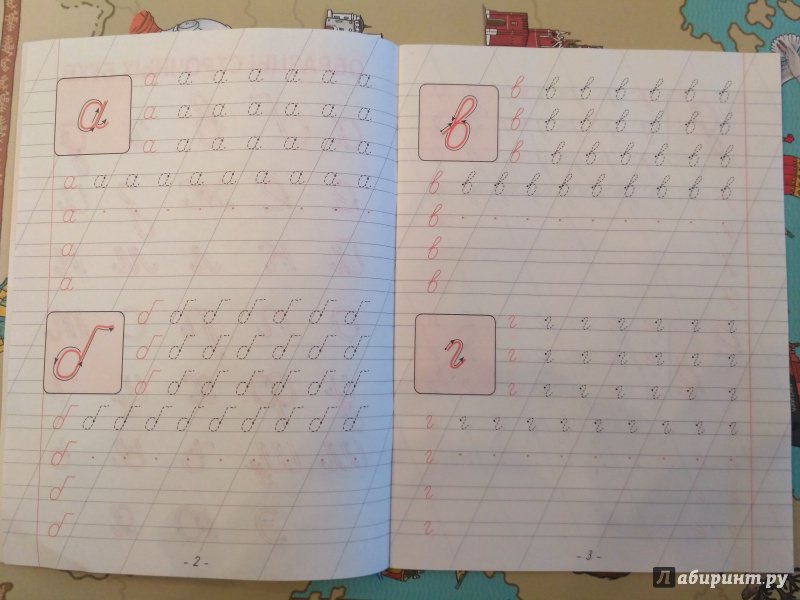 а
а а а а а а а
а а а а а а а
а а а а а а а
а а а а а а а а а а
а
а
а
б
б б б б б б б
б б б б б б б
б б б б б б б
б б б б б б б б б б
б
б
б
- 2 -
в
в в в в в в в
в в в в в в в
в в в в в в в
в в в в в в в в в в
в
в
в
г
г г г г г г г
г г г г г г г
г г г г г г г
г г г г г г г г г г
г
г
г
- 3 -
Лабиринт.ру